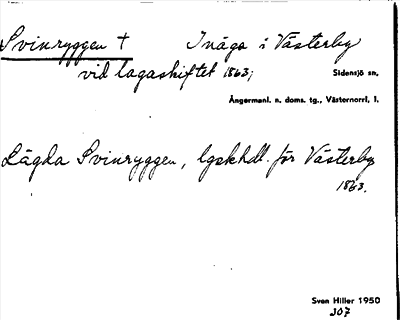 Svinryggen † Inäga i Västerby
vid lagaskiftet 1863;
Sidensjö sn,
Ångermanl. n. doms. tg., Västernorrl, l.
Lägda Svinryggen, lgskhdl. för Västerby
1863.
Sven Hiller 1950
307